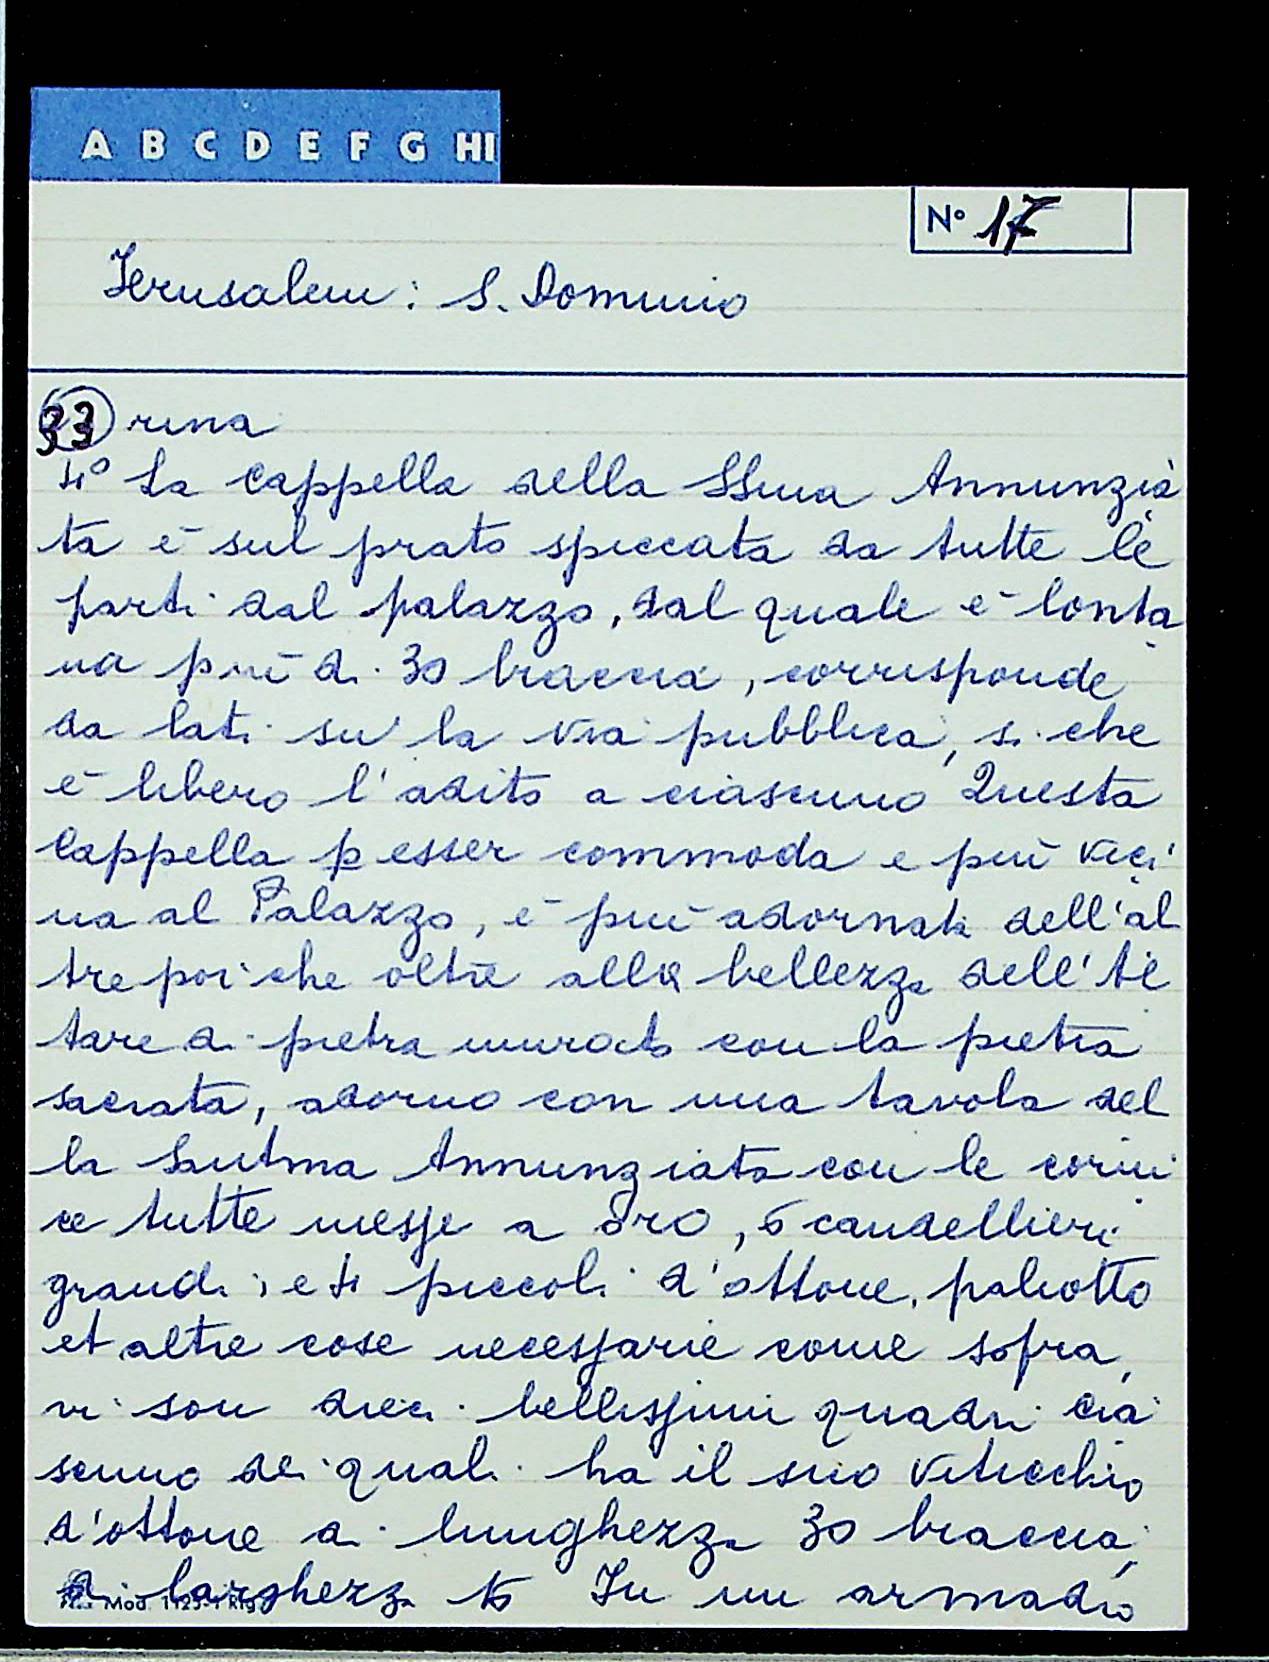 A B C D E F G HI
N° 17
Jerusalem: S. Domenico
33 rina
4° La Cappella della SSma Annunzia
ta è sul prato spiccata da tutte le
parti dal palazzo, dal quale è lonta
na più di 30 braccia, corrisponde
da lati su la via pubblica, si che
è libero l'adito a ciascuno Questa
Cappella p esser commoda e più vici
na al Palazzo, è più adornata dell'al
tre poi che oltre alla bellezza dell'Al
tare di pietra murato con la pietra
sacrata, adorno con una tavola del
la Santma Annunziata con le corni
ce tutte messe a oro, 6 candellieri
grandi, e 4 piccoli d'ottone, paliotto
et altre cose necessarie come sopra,
vi son dieci bellissimi quadri cia
scuno de quali ha il suo viticchio
d'ottone di lunghezza 30 braccia,
di larghezza In un armadio